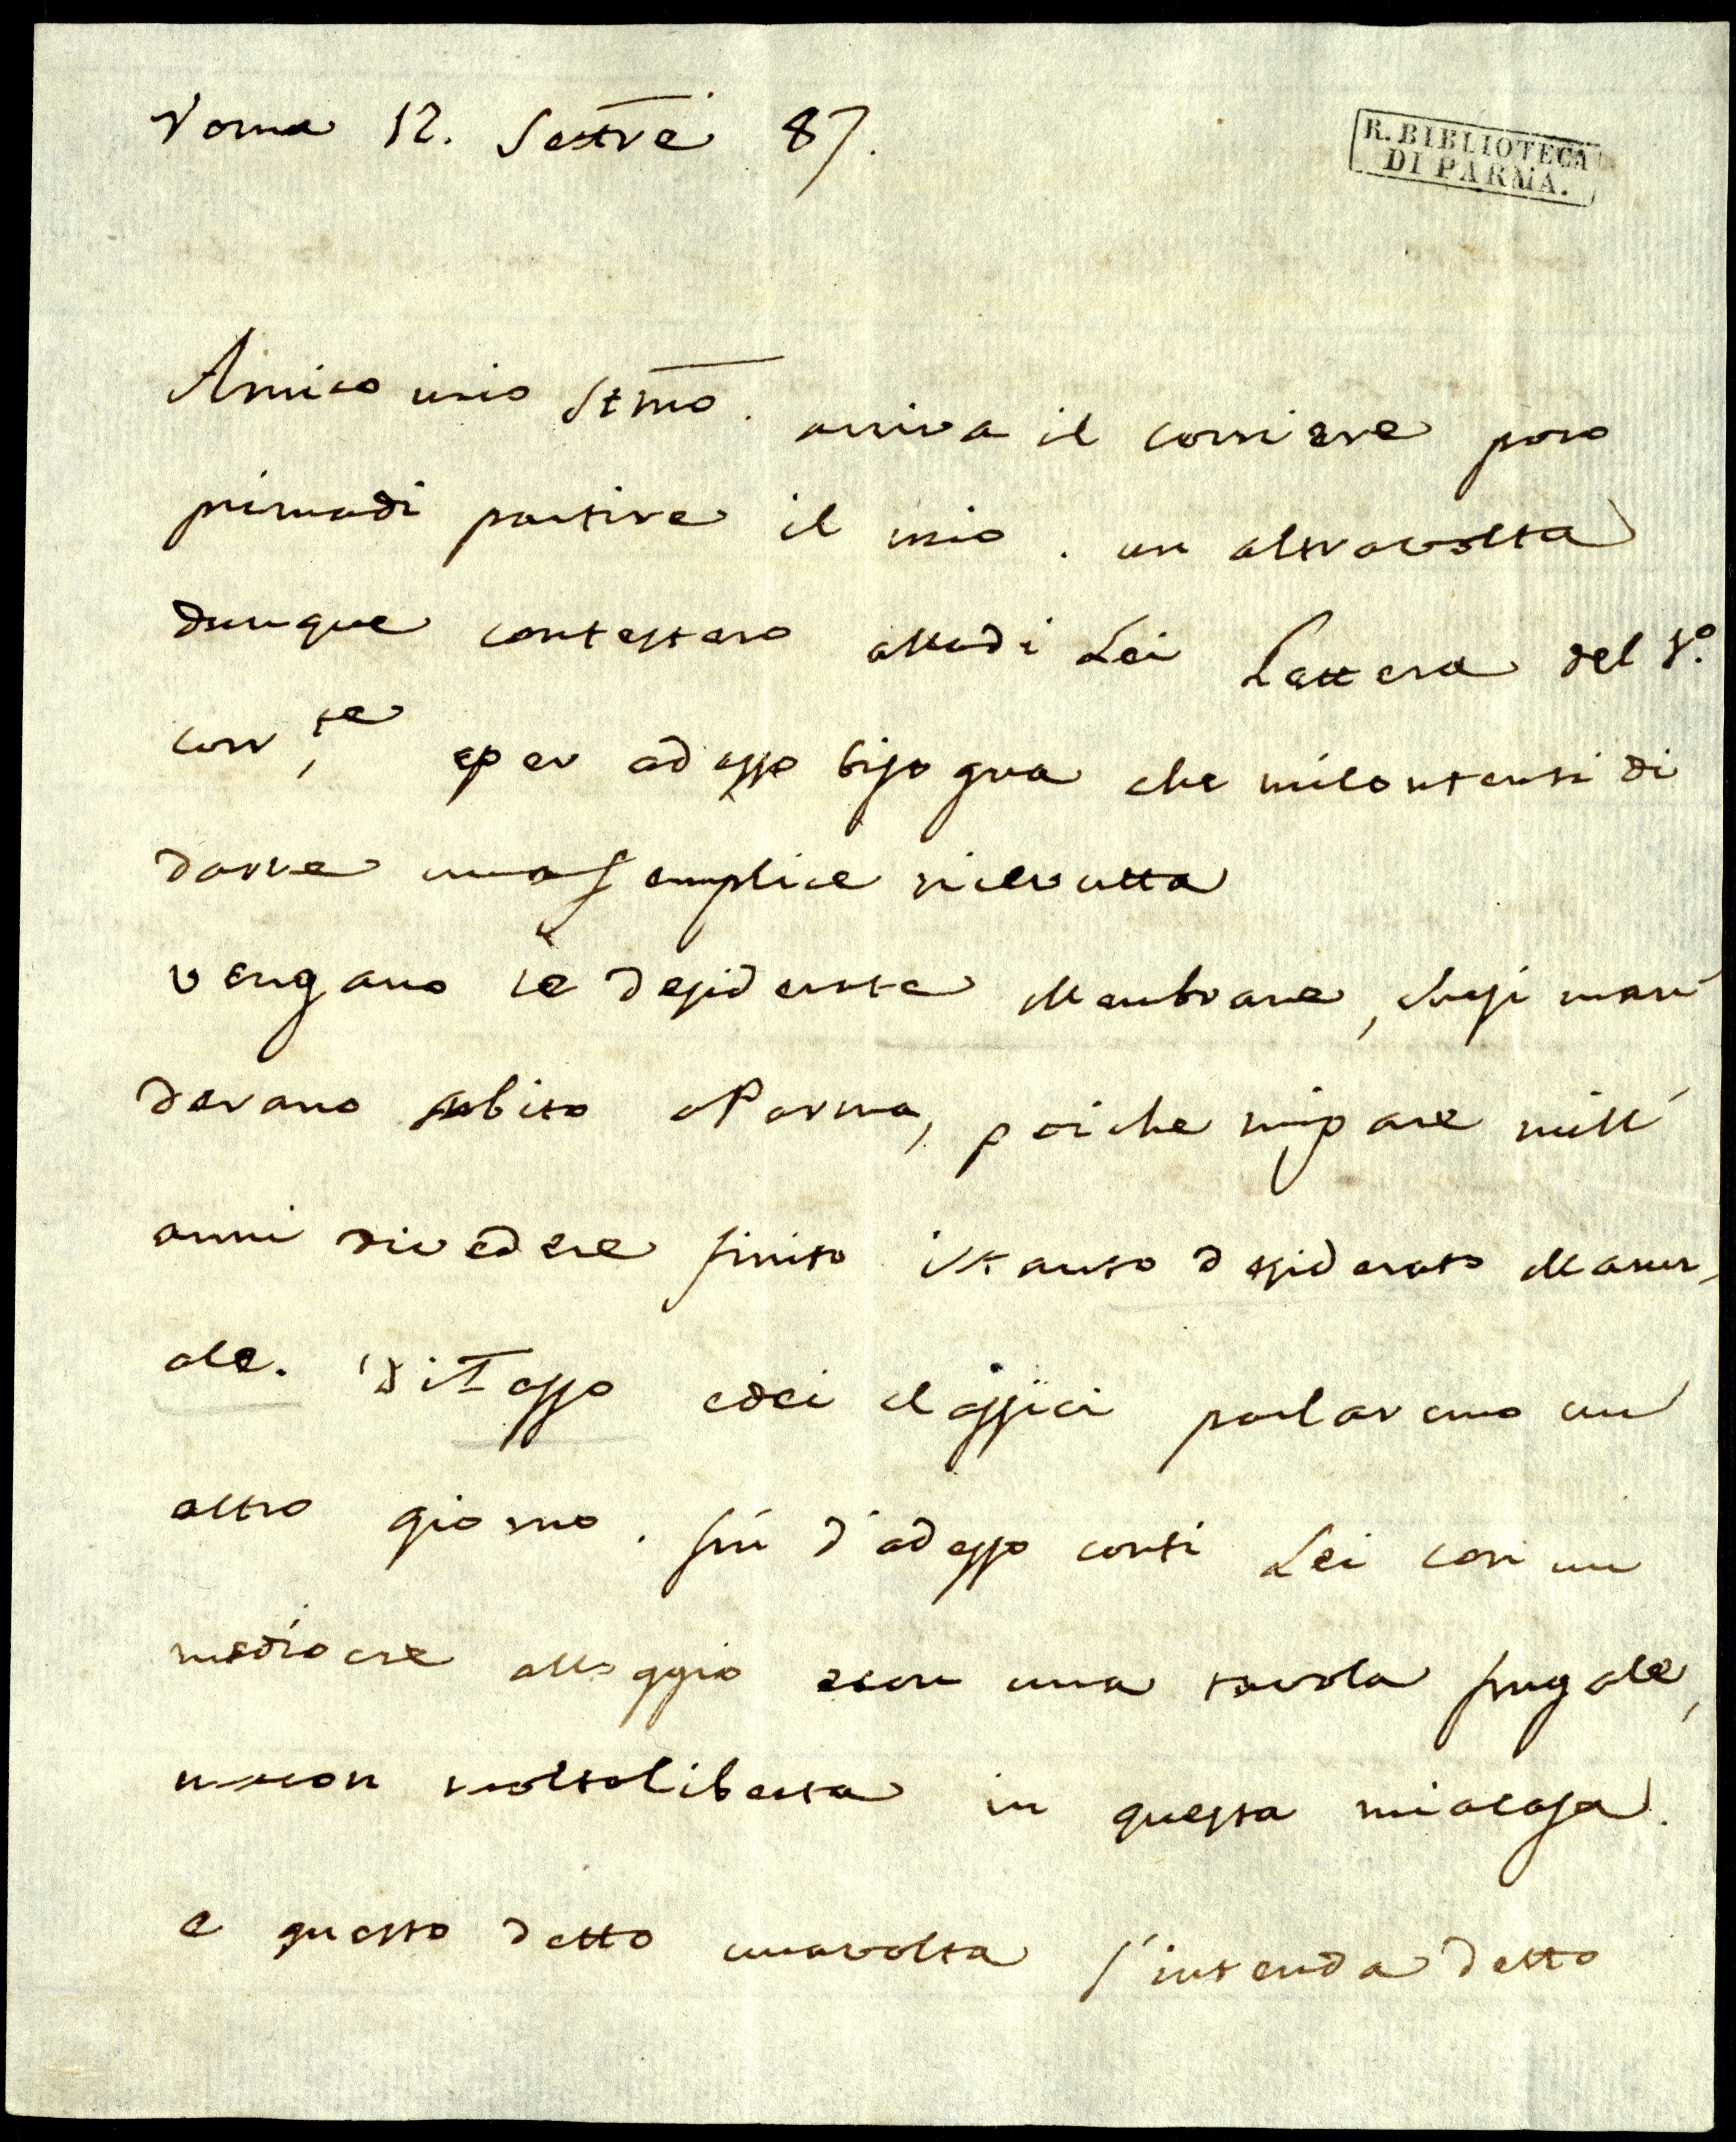 Roma 12. Settre 87.
R. BIBLIOTECA
DI PARMA.
Amico mio Stmo. arriva il corriere poco
primadi partire il mio. un altravolta
dunque contestero alladi Lei Lettera del 1º.
corr,te eper adesso bisogna che micontenti di
darve una semplice ricevutta
vengano le desiderate Membrane, susi man
derano subito aParma, poiche mipare mill'
anni rivedere finito iltanto desiderato Manu,
ale. DiTasso edei classici parlaremo un
altro giorno. fin d'adesso conti Lei con un
mediocre alloggio econ una tavola frugale,
macon moltaliberta in questa miacasa.
e questo detto unavolta s'intenda detto